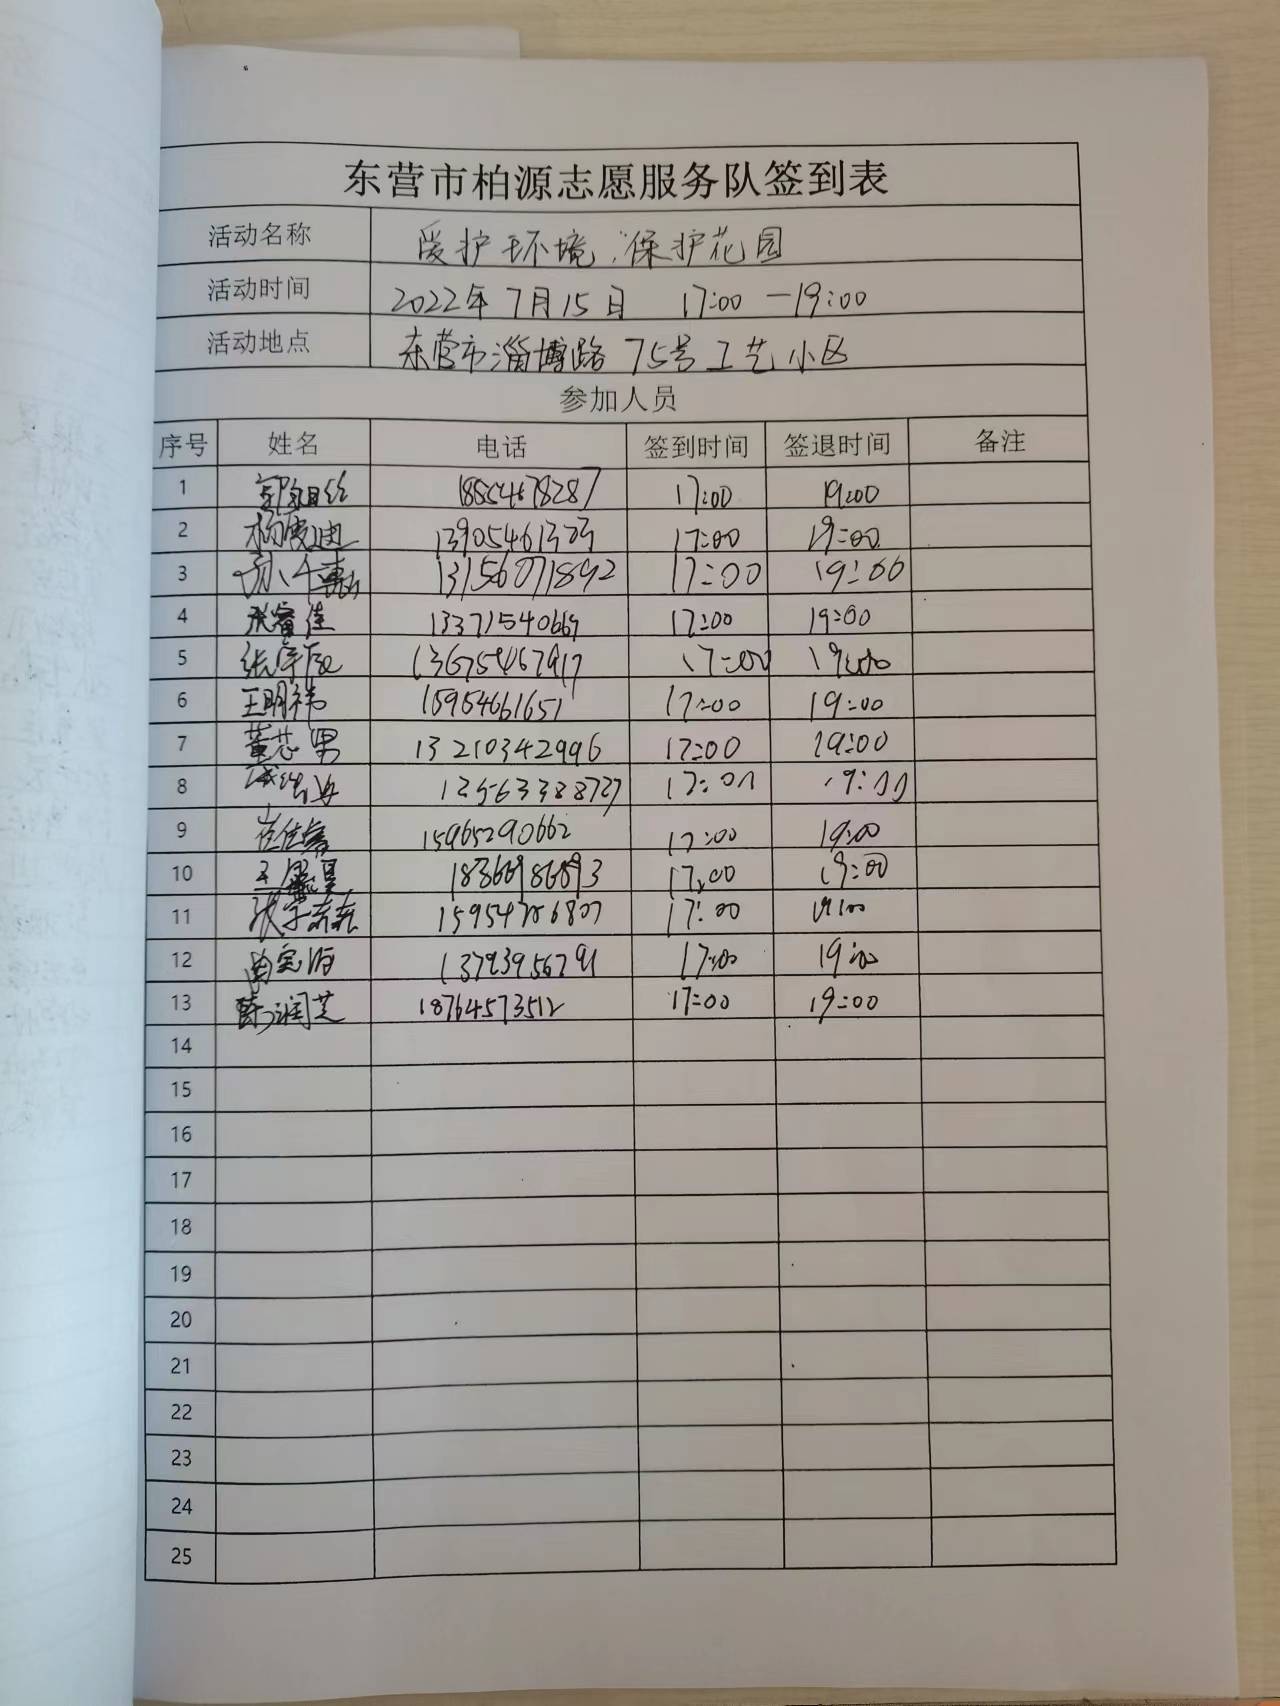 东营市柏源志愿服务队签到表
活动名称 爱护环境,保护花园
活动时间 2022年7月15日 17:00—19:00
活动地点 东营市淄博路75号工艺小区
参加人员
序号 姓名 电话 签到时间 签退时间 备注
1 18554678287 17:00 19:00
2 17:00 19:00
3 17:00 19:00
4 张睿佳 13371540669 17:00 19:00
5 13675467917 17:00 19:00
6 王明祎 15954661651 17:00 19:00
7 董芯男 13210342996 17:00 19:00
8 17:00 19:00
9 15965290662 17:00 19:00
10 17:00 19:00
11 17:00 19:00
12 13793956791 17:00 19:00
13 陈润芝 18764573512 17:00 19:00
14
15
16
17
18
19
20
21
22
23
24
25